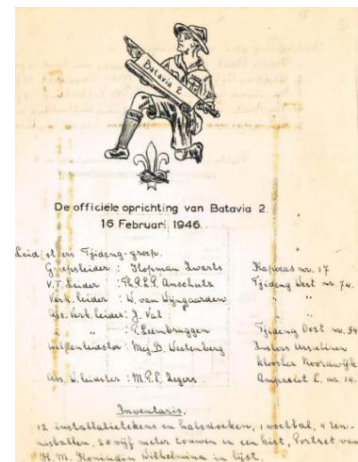 Batavia 2
De officiële oprichting van Batavia 2.
16 Februari 1946.
Leid st ers Tjideng-groep.
Groepsleider : Hopman Zwarts
V.T. Leider : Ph.P.E.P. Anschutz Tjideng West nr. 74.
Verk. leider : W. van Wijngaarden " "
Ass. Verk. leider : J. Val " "
" : P. Leembruggen Tjideng Oost nr. 54
Mej. D. Westenberg Zusters Ursulinen
klooster Noordwijk
Ass. W. leidster : M.P.E. Zegers
Inventaris.
12 installatietekens en halsdoeken, 1 voetbal, 4 ten-
nisballen, 20 vijf meter touwen en een kist, Portret van
H. M. Koningin Wilhelmina in lijst.